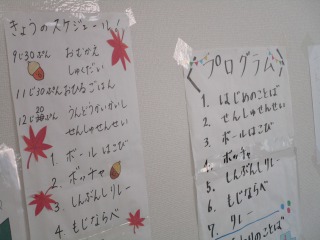 きょうのスケジュール！
9じ30ぷん おむかえ
しゅくだい
11じ30ぷん おひるごはん
12じ20ぷん うんどうかいかいし
せんしゅせんせい
1. ボールはこび
2. ボッチャ
3. しんぶんしリレー
4. もじならべ
プログラム！
1. はじめのことば
2. せんしゅせんせい
3. ボールはこび
4. ボッチャ
5. しんぶんしリレー
6. もじならべ
7. リレー
のことば